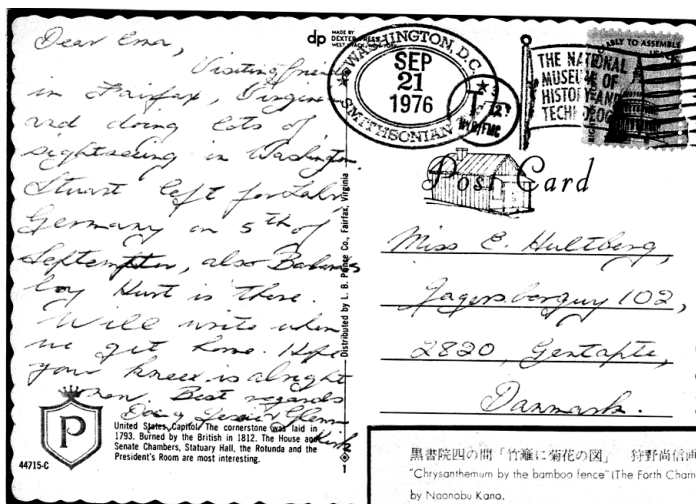 Dear Ema,
Visiting frien
in Fairfax, Virgini
and doing lots of
sightseeing in Washington.
Stuart left for
Germany on 5th of
September, also Barbaras
boy Kurt is there.
Will write when
we get home. Hope
your knee is alright
Best regards
Doug Glenn
dp
MADE BY
DEXTER PRESS
WEST NYACK, NEW YORK
WASHINGTON, D.C.
SEP
21
1976
SMITHSONIAN
THE NATIONAL
MUSEUM OF
HISTORY AND
TECHNOLOGY
ABLY TO ASSEMBLE
Post Card
Miss E. Hultberg,
102,
2820, Gentofte,
Danmark.
Distributed by L. B. Prince Co., Fairfax, Virginia
P
United States Capitol The cornerstone was laid in
1793. Burned by the British in 1812. The House and
Senate Chambers, Statuary Hall, the Rotunda and the
President's Room are most interesting.
44715-C
1
黒書院四の間「竹籬に菊花の図」 狩野尚信画
"Chrysanthemum by the bamboo fence" (The Forth Cham
by Naonobu Kano.